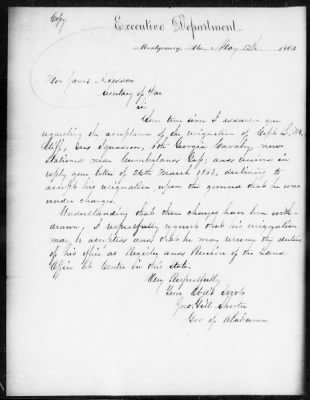 Copy
Executive Department.
Montgomery, Ala. May 12th 1863
Hon James A. Seddon
Secretary of War
Sir
Some time since I addressed you
requesting the acceptance of the resignation of Capt
Squadron, 6th Georgia Cavalry, now
stationed near Cumberland Gap; and received in
reply your letter of 26th March 1863, declining to
accept his resignation upon the ground that he was
under charges.
Understanding that these charges have been with-
drawn, I respectfully request that his resignation
may be accepted and that he may resume the duties
of his office as Register and Receiver of the Land
Office at Centre in this state.
Very Respectfully
Your Obdt Servt
Jno. Gill Shorter
Gov of Alabama